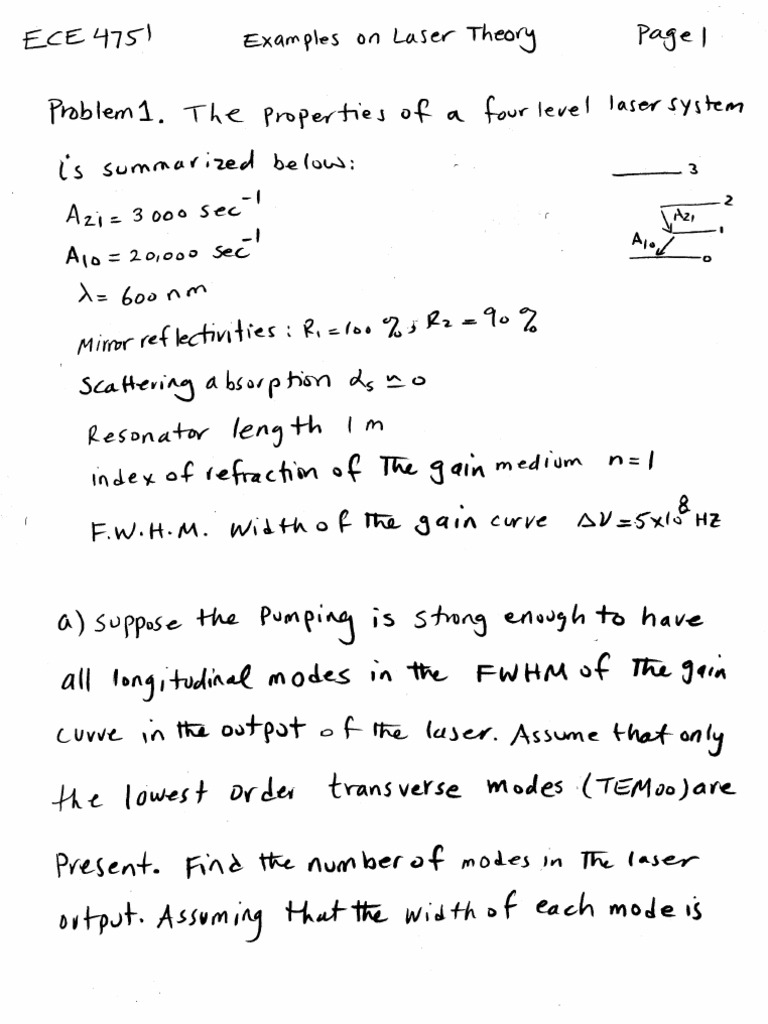 ECE 4751 Examples on Laser Theory Page 1
Problem 1. The properties of a four level laser system
is summarized below:
3
A21 = 3000 sec-1
2
A21
1
A10
0
A10 = 20,000 sec-1
λ = 600 nm
Mirror reflectivities: R1 = 100 %, R2 = 90 %
Scattering absorption αs ≃ 0
Resonator length 1 m
index of refraction of The gain medium n=1
F.W.H.M. Width of the gain curve Δν = 5x10^8 HZ
a) suppose the Pumping is strong enough to have
all longitudinal modes in the FWHM of The gain
curve in the output of the laser. Assume that only
the lowest order transverse modes (TEM00) are
Present. Find the number of modes in The laser
output. Assuming that the width of each mode is